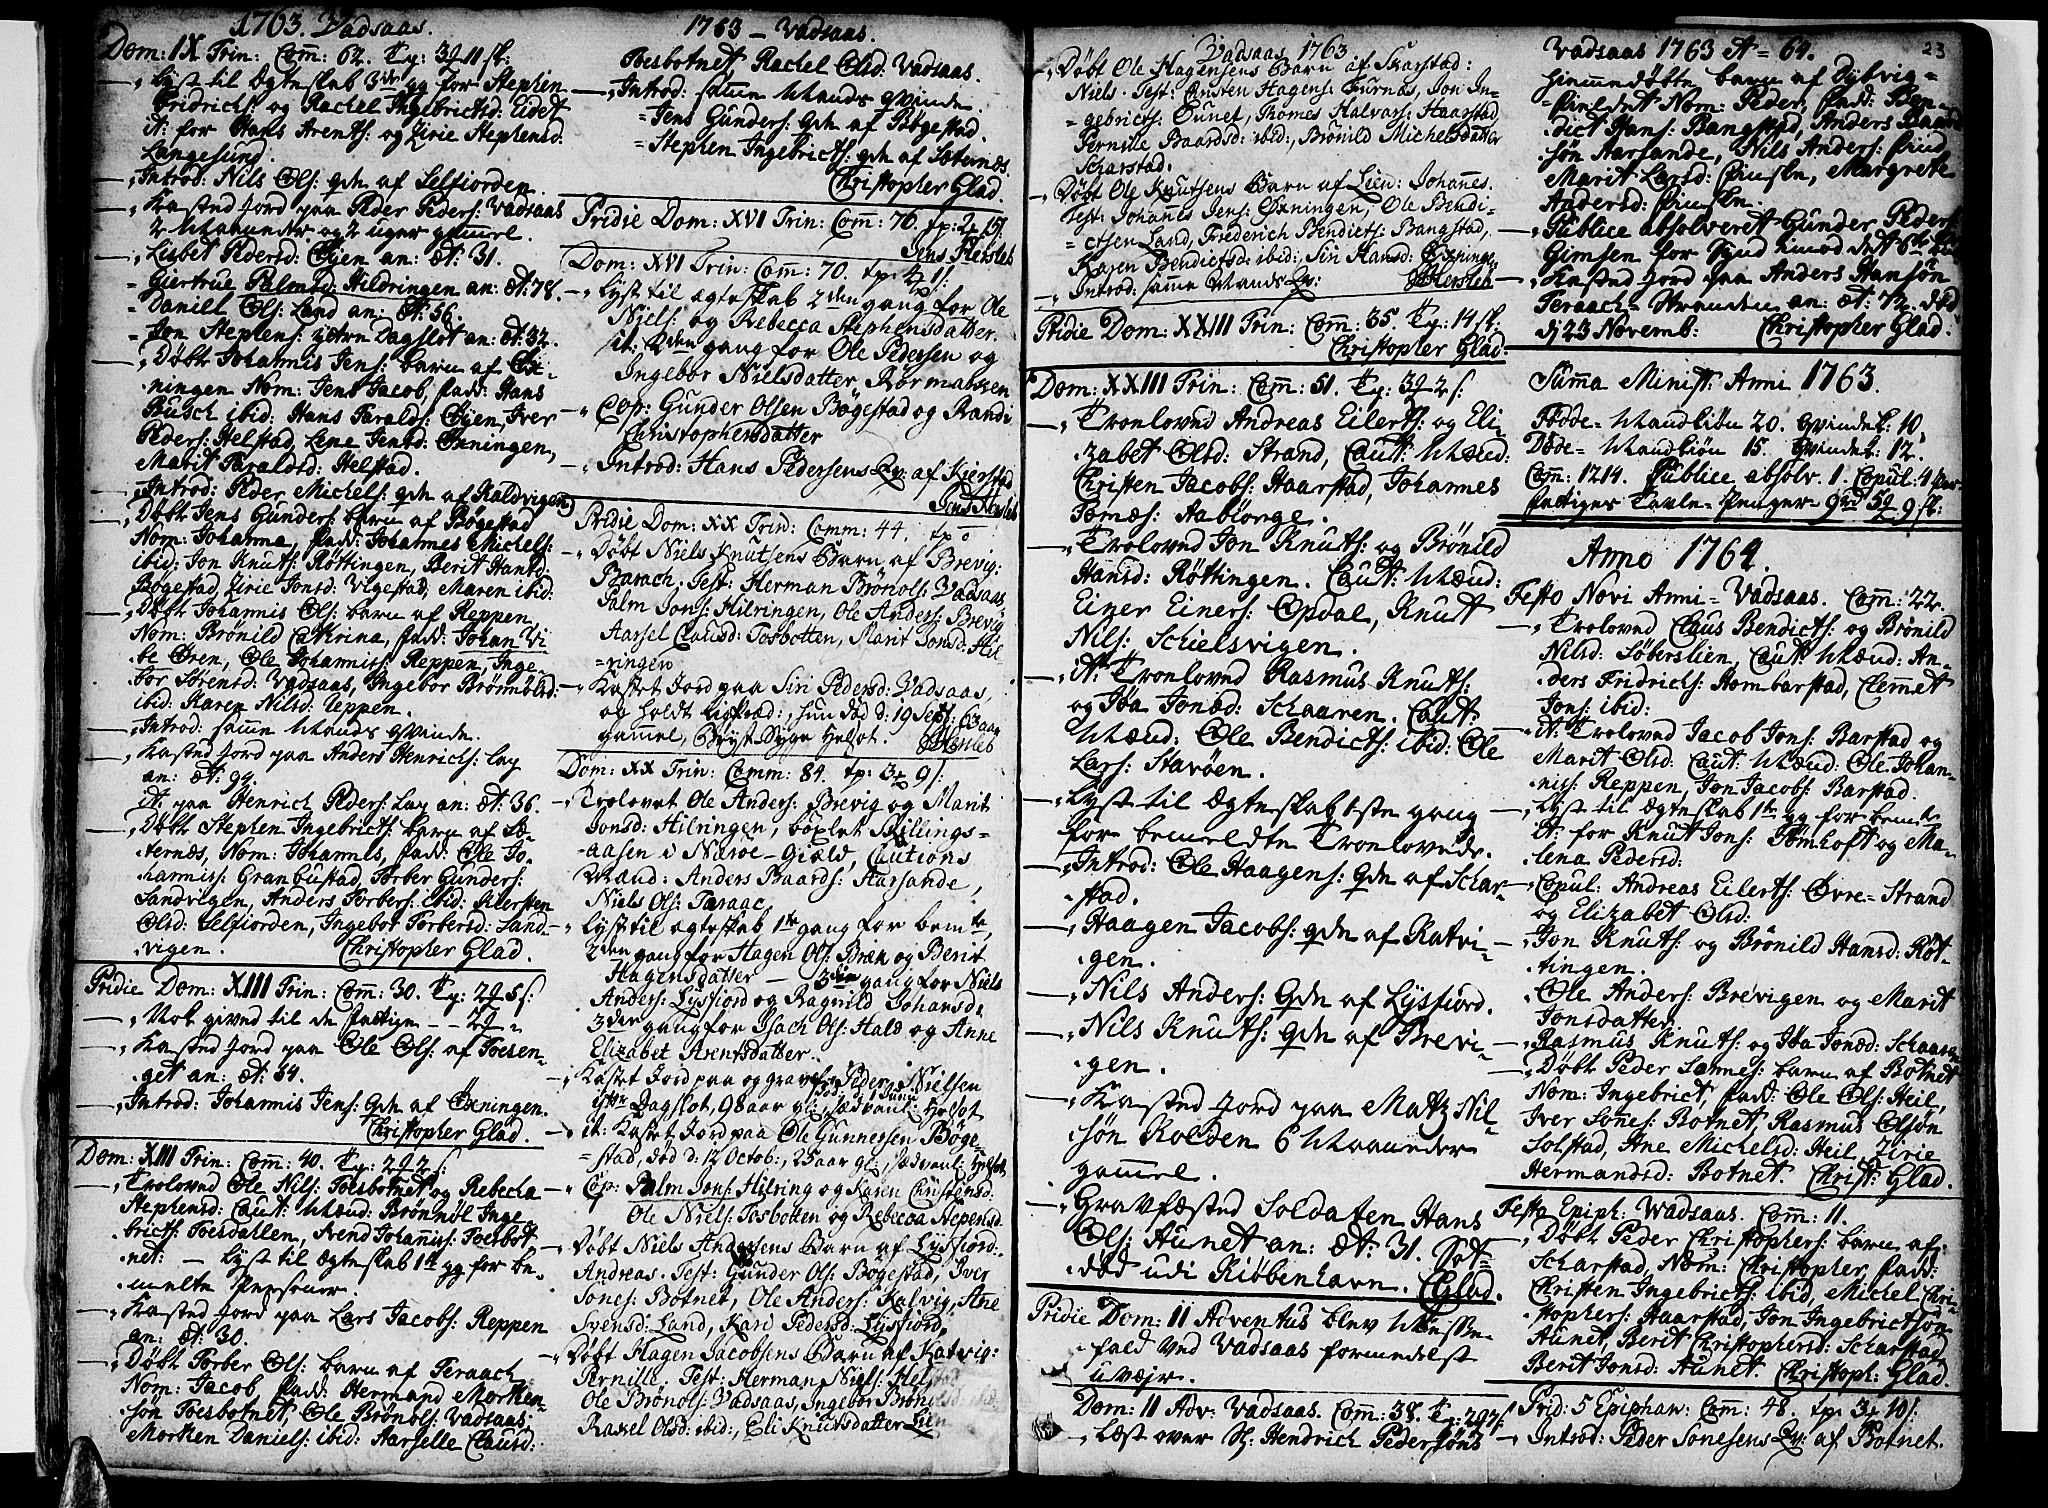 1763. Vadsaas.
Dom: IX Trin: Com̄: 62.
Lyst til Ægteskab 3die gg for Stephen
Fridrichs: og Rachel Ingebrictsd: Eidet
it: for Hans Arents: og Zirie Stephensd:
Langesund.
Introd: Nils Ols: qvn af Selfiorden.
Kasted Jord paa Peder Peders: Vadsaas
2 Maaneder og 2 uger gamel.
Lisbet Pedersd: Øyen an: æt: 31.
Giertrue Palmsd: Hildringen an: æt: 78.
Daniel Ols: Land an: æt: 56.
Jon Stephens: Dagslot an: æt: 32.
Døbt Johannis Jens: barn af Øx-
ningen Nom: Jens Jacob, fadd: Hans
Busch ibid: Hans Taralds: Øyen, Iver
Peders: Helstad, Lene Jensd: Øxningen,
Marit Taraldsd: Helstad.
Introd: Peder Michels: qvn af Kaldvigen
Døbt Jens Gunders: barn af Bøgestad
Nom: Johanna, fadd: Johannes Michels:
ibid: Jon Knuts: Røttingen, Berit Hansd:
Bøgestad, Zirie Jonsd: Vigestad, Maren ibid:
Døbt Johannis Ols: barn af Reppen
Nom: Brønild Catrina, fadd: Johan Vi
be Øren, Ole Johanniss: Reppen, Inge
bor Sørensd: Vadsaas, Ingebor Brønnolsd:
ibid: Karen Nilsd: Reppen.
Introd: samme Mands qvinde.
Kasted Jord paa Anders Henrichs: Lay
an: æt: 94.
it: paa Henrich Peders: Lay an: æt: 36.
Døbt Stephen Ingebricts: barn af Sæ-
ternæs, Nom: Johannis, fadd: Ole Jo-
hanniss: Granbustad, Torber Gunders:
Sandvigen, Anders Torbers: ibid: Kiersten
Olsd: Selfiorden, Ingebor Torbersd: Sand-
vigen. Christopher Glad.
Pridie Dom: XIII Trin: Com̄: 30.
Nok gived til de fattige
Kasted Jord paa Ole Ols: af Toesen-
get an: æt: 54.
Introd: Johannis Jens: qvn af Øxningen.
Christopher Glad.
Dom: XIII Trin: Com̄: 40.
Troloved Ole Nils: Toesbotnet og Rebecha
Stephensd: Caut: Mænd: Brønnol Inge
bricts: Toesdahlen, Svend Johannis: Toesbot
net: — Lyst til Ægteskab 1te gg for be-
melte Personer.
Kasted Jord paa Lars Jacobs: Reppen
an: æt: 30.
Døbt Torber Ols: barn af Teraach
Nom: Jacob, fadd: Hermand Morken-
søn Toesbotnet, Ole Brønols: Vadsaas:
Morken Daniels: ibid: Aarselle Clausd:
1763 – Vadsaas.
Toesbotnet, Rachel Olsd: Vadsaas.
Introd: samme Mands Qvinde.
Jens Gunders: qvn af Bøgestad.
Stephen Ingebricts: qvn af Sæternæs.
Christopher Glad.
Pridie Dom: XVI Trin: Com̄: 76.
Jens Hersleb
Dom: XVI Trin: Com̄: 70.
Lyst til ægteskab 2den gang for Ole
Niels: og Rebecca Stephensdatter.
it: 2den gang for Ole Pedersen og
Ingebor Nielsdatter Kormabsen
Cop: Gunder Olsen Bøgestad og Randi
Christophersdatter
Introd: Hans Pedersens Qv: af Kierstad
Jens Hersleb
Pridie Dom: XX Trin: Comm: 44.
Døbt Niels Knutsens Barn af Brevig:
Barach. Test: Herman Brønols: Vadsaas,
Palm Jons: Hilringen, Ole Anders: Brevig
Aarsel Clausd: Tosbotten, Marit Jonsd: Hil
=ringen
Kastet Jord paa Siri Pedersd: Vadsaas,
og holdt ligpræd:, hun død d: 19 Sept: 63 aar
gamel, Bryst Syge Helsot. JHersleb
Dom: XX Trin: Comm: 84.
Trolovet Ole Anders: Brevig og Marit
Jonsd: Hilringen, böxlet Skillings=
aasen i Næroe-Giæld, Cautions
Mænd: Anders Baards: Aarsande,
Niels Ols: Taraac,
Lyst til ægteskab 1te gang for bemte,
2den gang for Hagen Ols: Bræk og Berit
Hagensdatter — 3die gang for Niels
Anders: Lysfiord og Ragnild Johansd:
3die gang for Isach Ols: Hald og Anne
Elizabet Arentsdatter.
Kastet Jord paa Peder Nielsen
Dagslot, 98 aar gl: sædvanl: Helsot
it: Kastet Jord paa Ole Gunnersen Bøge-
stad, død d: 12 Octob:, 25 aar gl: sædvanl: Helsot
Cop: Palm Jons: Hilring og Karen Christensd:
Ole Niels: Tosbotten og Rebecca Stepensd.
Døbt Niels Andersens Barn af Lysfiord:
Andreas. Test: Gunder Ols: Bøgestad, Iver
Jones: Botnet, Ole Anders: Kalvig, Ane
Svensd: Land, Kari Pedersd: Lysfiord,
Døbt Hagen Jacobsens Barn af Katvig:
Pernille. Test: Herman Niels: Helstad
Ole Brønols: Vadsaas, Ingebor Brønolsd: ibid.
Raxel Olsd: ibid:, Eli Knutsdatter Lien
Vadsaas 1763
Døbt Ole Hagensens Barn af Skarstad:
Niels. Test: Christen Hagens: Furnæs, Jon In-
gebricts: Ounet, Thomes Halvars: Haarstad,
Pernille Baardsd: ibid:, Brönild Michelsdatter
Scharstad.
Døbt Ole Knutsens Barn af Lien: Johannes.
Test: Johanes Jens: Øxningen, Ole Bendi-
ctsen Land, Frederich Bendicts: Bangstad,
Karen Bendictsd: ibid: Siri Hansd: Øxningen
Introd: samme Mands Qv: JHersleb
Pridie Dom: XXIII Trin: Com̄: 35.
Christopher Glad.
Dom: XXIII Trin: Com̄: 51.
Troeloved Andreas Eilerts: og Eli-
zabet Olsd: Strand, Caut: Mænd:
Christen Jacobs: Haarstad, Johannes
Tomæs: Aabiørge.
Troloved Jon Knuts: og Brönild
Hansd: Røttingen. Caut: Mænd:
Einer Einers: Opdal, Knut
Nils: Schielsvigen.
it: Troeloved Rasmus Knuts:
og Ida Jonsd: Schaaren. Caut:
Mænd: Ole Bendicts: ibid: Ole
Lars: Stavöen.
Lyst til Ægteskab 1ste gang
for bemeldte Troelovede.
Introd: Ole Haagens: qvn af Schar-
stad.
Haagen Jacobs: qvn af Katvi-
gen.
Nils Anders: qvn af Lysfiord.
Nils Knuts: qvn af Brevi-
gen.
Kasted Jord paa Matz Nil-
søn Kolden 6 Maaneder
gammel.
Gravfæsted Soldaten Hans
Ols: Aunet an: æt: 31.
død udi Kiøbenhavn. CGlad.
Pridie Dom: II Adventus blev Messe-
fald ved Vadsaas formedelst
uvejr.
Dom: II Adv: Vadsaas. Com̄: 38.
Læst over Sl: Hendrich Pedersøns
23
Vadsaas 1763 & 64.
hiemmedøbte barn af Dybvig=
Nom: Peder, fadd: Ben-
dict Hans: Bangstad, Anders Baard
søn Aarsande, Nils Anders:
Marit Larsd: Margrete
Andersd:
Publice absolveret Gunder Peders:
Gimsen for Synd imod det 6te bud
Kasted Jord paa Anders Hansøn
Teraach-Stranden an: æt: 72. død
d: 23 Novemb: Christopher Glad.
Sum̄a Minist: Anni 1763.
Fødde- Mandkiön 20. Qvindek: 10.
Døde- Mandkiön 15. Qvindek: 12.
Com̄: 1214. Publice absolv. 1. Copul: 4 par
fattiges Tavle-Penger
Anno 1764.
Festo Novi Anni- Vadsaas. Com̄: 22.
Troloved Claus Bendicts: og Brönild
Nilsd: Søberslien, Caut: Mænd: An-
ders Fridrichs: Hombarstad, Clemmet
Jons: ibid:
it: Troloved Jacob Jons: Barstad og
Marit Olsd: Caut: Mænd: Ole Johan-
niss: Reppen, Jon Jacobs: Barstad.
Lyst til Ægteskab 1te gg for bemte
it: for Knut Jons: Tomhoft og Ma-
lena Pedersd:
Copul: Andreas Eilerts: Øvre-Strand
og Elizabet Olsd:
Jon Knuts: og Brönild Hansd: Røt-
tingen.
Ole Anders: Brevigen og Marit
Jonsdatter.
Rasmus Knuts: og Ida Jonsd: Schaaren
Døbt Peder Sønnes: barn af Botnet
Nom: Ingebrict, fadd: Ole Ols: Heil,
Iver Sones: Botnet, Rasmus Olsøn
Solstad, Ane Michelsd: Heil, Zirie
Hermansd: Botnet. Christ: Glad.
Festo Epiph: Vadsaas. Com̄: 11.
Døbt Peder Christophers: barn af
Scharstad, Nom: Christopher, fadd:
Christen Ingebricts: ibid, Michel Chri-
stophers: Haarstad, Jon Ingebrictsøn
Aunet, Berit Christophersd: Scharstad,
Berit Jonsd: Aunet. Christoph: Glad.
Prid: 5 Epiphan: Com̄: 48.
Introd: Peder Sonesens Qv: af Botnet.